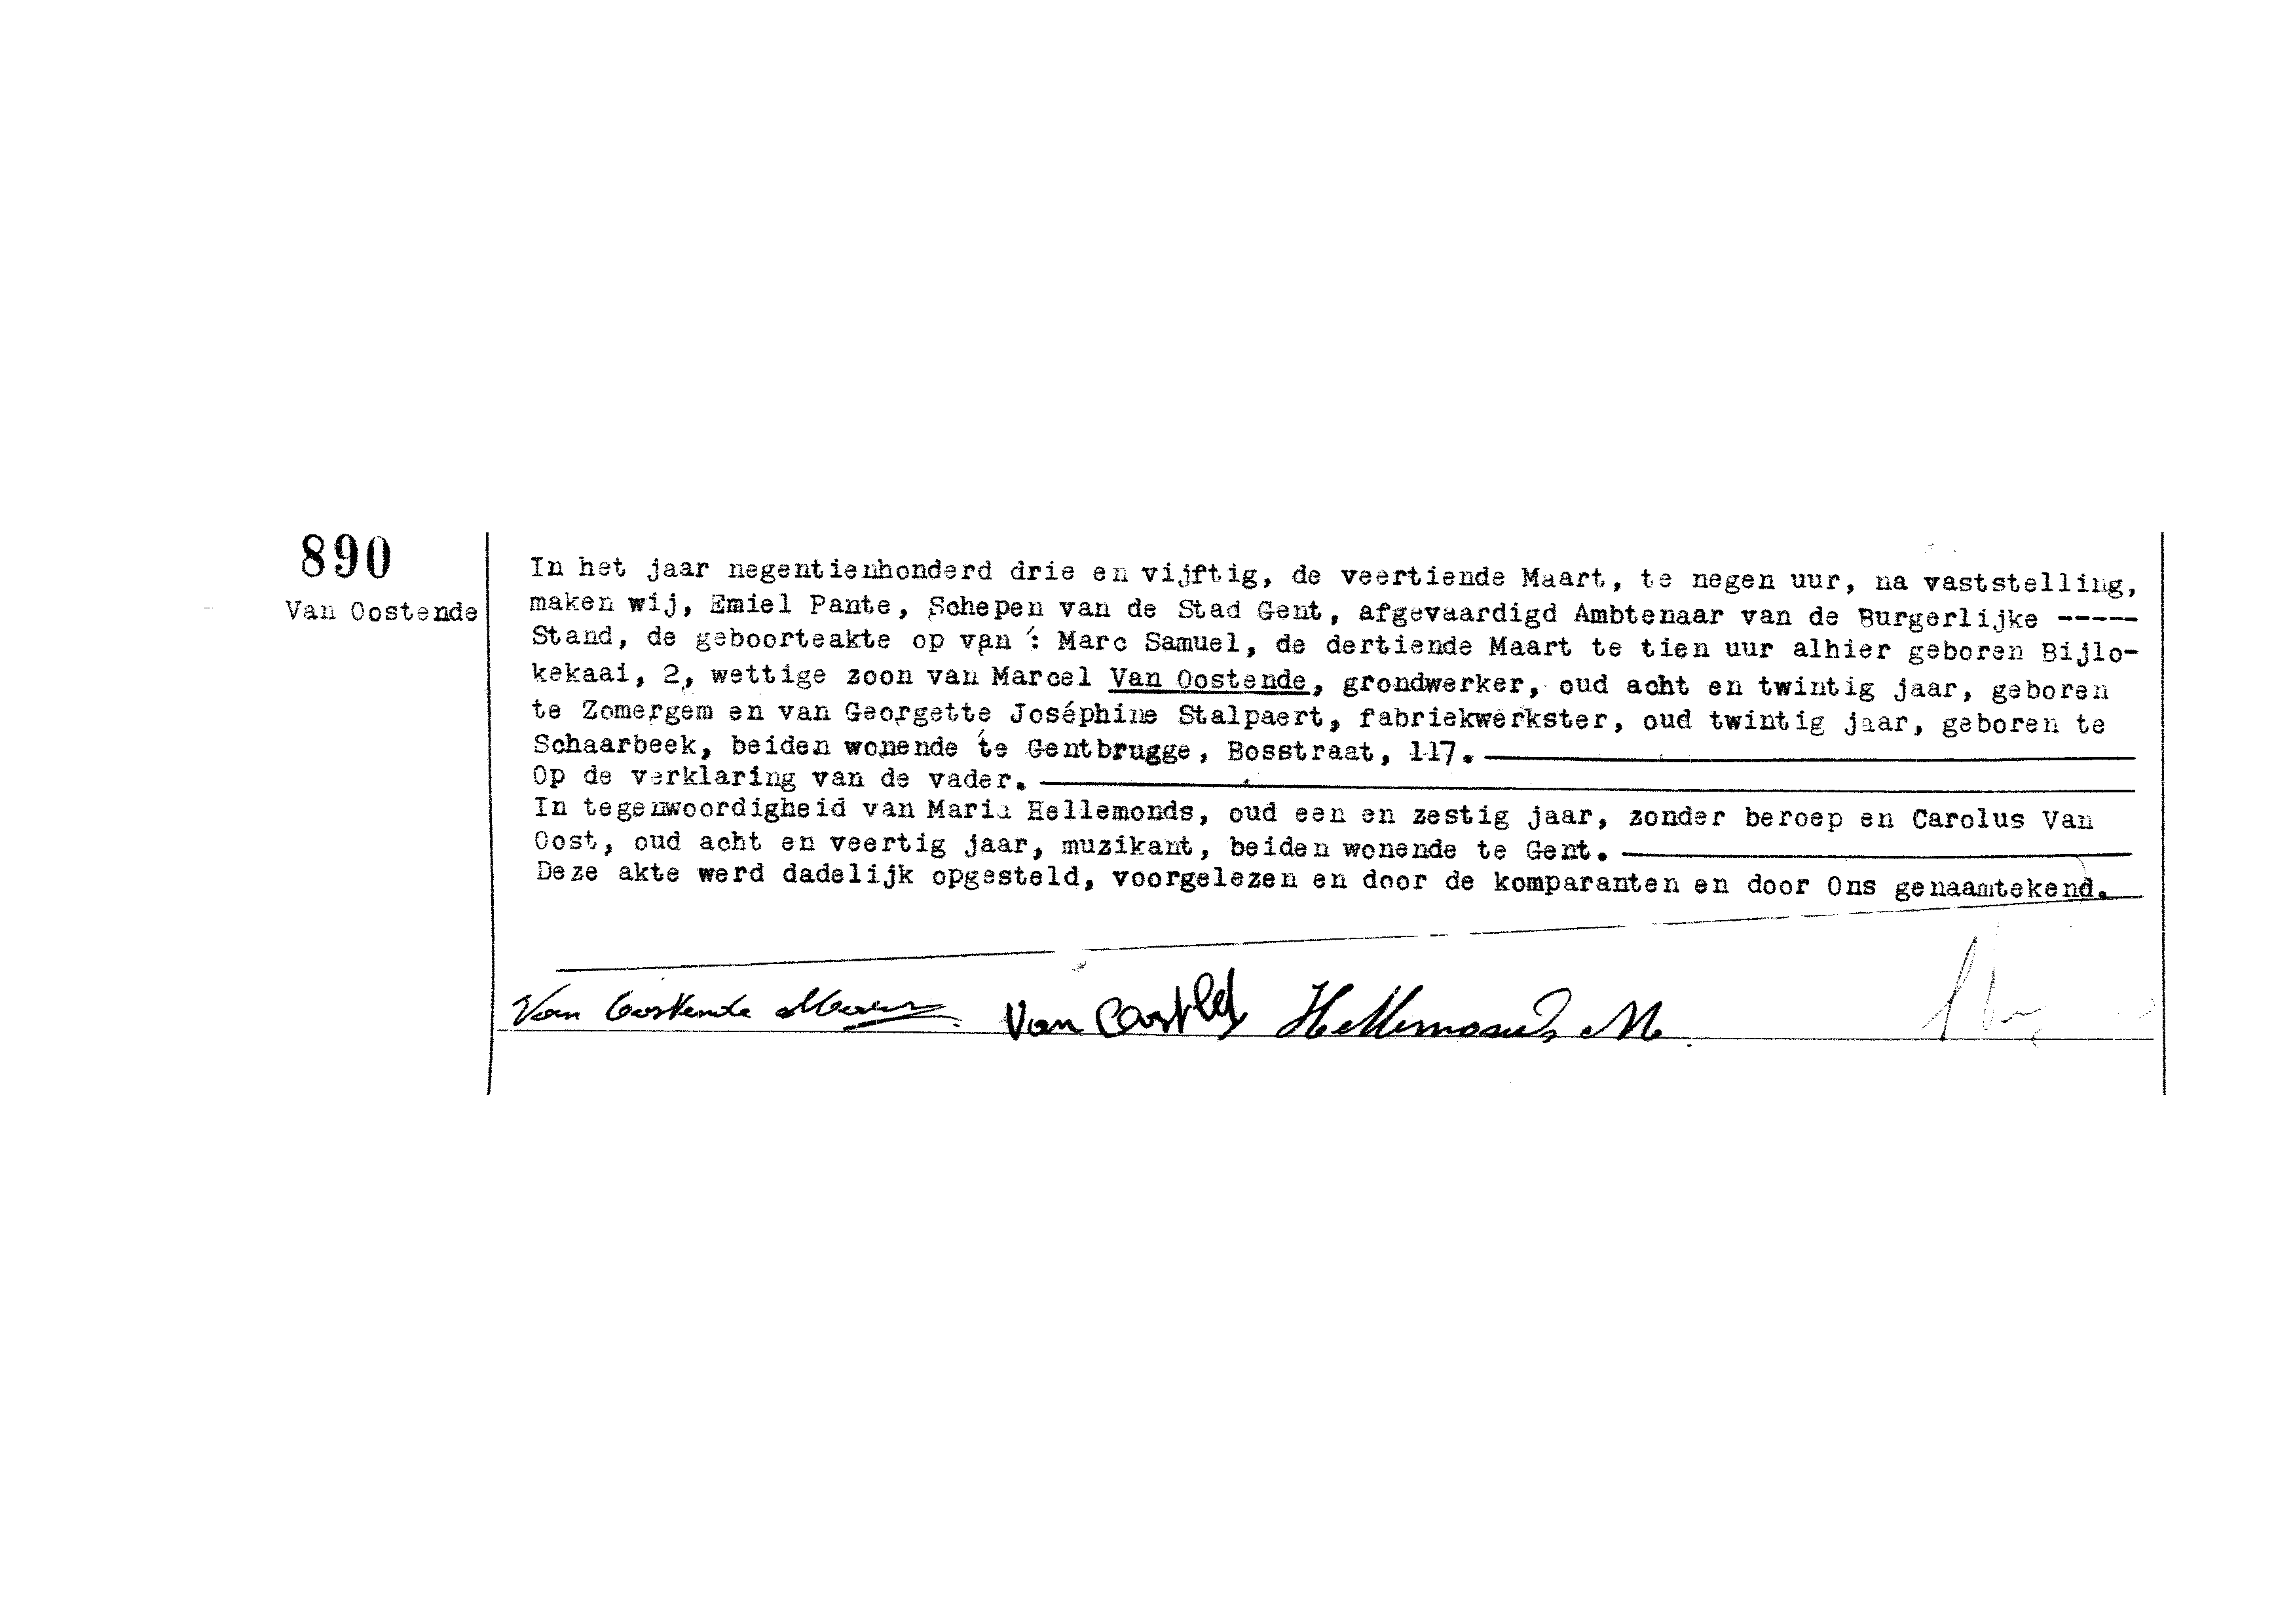 890
Van Oostende
In het jaar negentienhonderd drie en vijftig, de veertiende Maart, te negen uur, na vaststelling,
maken wij, Emiel Pante, Schepen van de Stad Gent, afgevaardigd Ambtenaar van de Burgerlijke -----
Stand, de geboorteakte op van : Marc Samuel, de dertiende Maart te tien uur alhier geboren Bijlo-
kekaai, 2, wettige zoon van Marcel Van Oostende, grondwerker, oud acht en twintig jaar, geboren
te Zomergem en van Georgette Joséphine Stalpaert, fabriekwerkster, oud twintig jaar, geboren te
Schaarbeek, beiden wonende te Gentbrugge, Bosstraat, 117.
Op de verklaring van de vader.
In tegenwoordigheid van Maria Hellemonds, oud een en zestig jaar, zonder beroep en Carolus Van
Oost, oud acht en veertig jaar, muzikant, beiden wonende te Gent.
Deze akte werd dadelijk opgesteld, voorgelezen en door de komparanten en door Ons genaamtekend.
Van Oostende Van Hellemonds M.